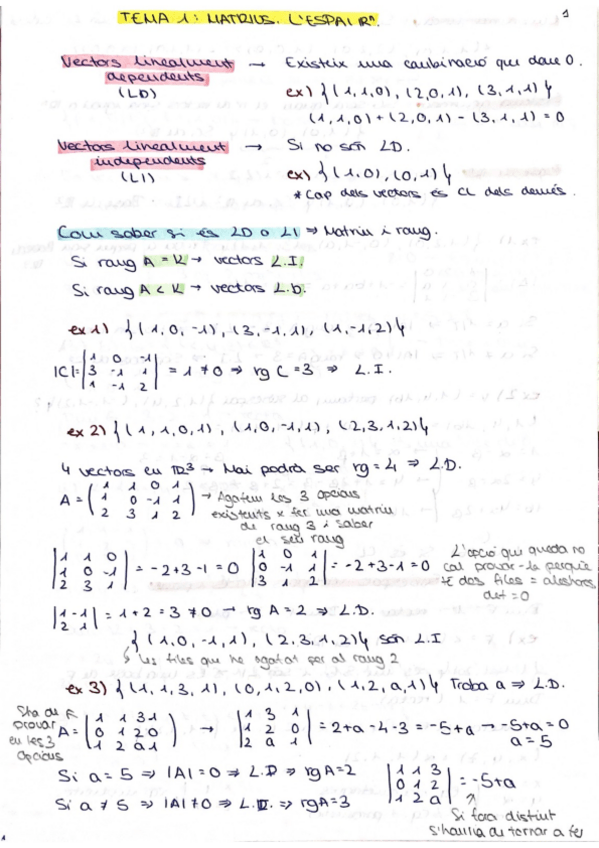 TEMA 1: MATRIUS. L'ESPAI Rⁿ.
1
Vectors linealment dependents (LD) → Existeix una combinació que done 0.
ex) { (1,1,0), (2,0,1), (3,1,1) }
(1,1,0) + (2,0,1) - (3,1,1) = 0
Vectors linealment independents (LI) → Si no són LD.
ex) { (1,0), (0,1) }
* Cap dels vectors és CL dels demés.
Com saber si és LD o LI ⇒ Matriu i rang.
Si rang A = K → vectors L.I.
Si rang A < K → vectors L.D.
ex 1) { (1,0,-1), (3,-1,1), (1,-1,2) }
|C| = | 1 0 -1 | 3 -1 1 | 1 -1 2 | = 1 ≠ 0 ⇒ rg C = 3 ⇒ L.I.
ex 2) { (1,1,0,1), (1,0,-1,1), (2,3,1,2) }
4 vectors en R³ → Mai podrà ser rg = 4 ⇒ L.D.
A = ( 1 1 0 1 | 1 0 -1 1 | 2 3 1 2 ) → Agafem les 3 opcions
existents x fer una matriu
de rang 3 i saber
el seu rang
| 1 1 0 | 1 0 -1 | 2 3 1 | = -2+3-1 = 0 | 1 0 1 | 0 -1 1 | 3 1 2 | = -2+3-1 = 0
L'opció qui queda no
cal provar-la perquè
té dos files = aleshores
det = 0
| 1 -1 | 2 1 | = 1+2 = 3 ≠ 0 → rg A = 2 ⇒ L.D.
{ (1,0,-1,1), (2,3,1,2) } són L.I
↳ les files que he agafat per al rang 2
ex 3) { (1,1,3,1), (0,1,2,0), (1,2,a,1) } Troba a ⇒ L.D.
S'ha de
provar
en les 3
opcions
A = ( 1 1 3 1 | 0 1 2 0 | 1 2 a 1 ) → | 1 3 1 | 1 2 0 | 2 a 1 | = 2+a-4-3 = -5+a → -5+a = 0
a = 5
Si a = 5 ⇒ |A| = 0 ⇒ L.D ⇒ rg A = 2
Si a ≠ 5 ⇒ |A| ≠ 0 ⇒ L.I. ⇒ rg A = 3
| 1 1 3 | 0 1 2 | 1 2 a | = -5+a
Si fora distint
s'hauria de tornar a fer